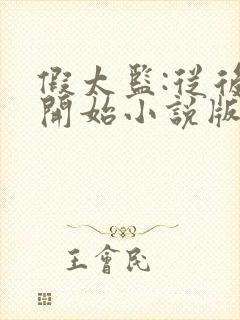 假太監:從後
開始小說版
王會民